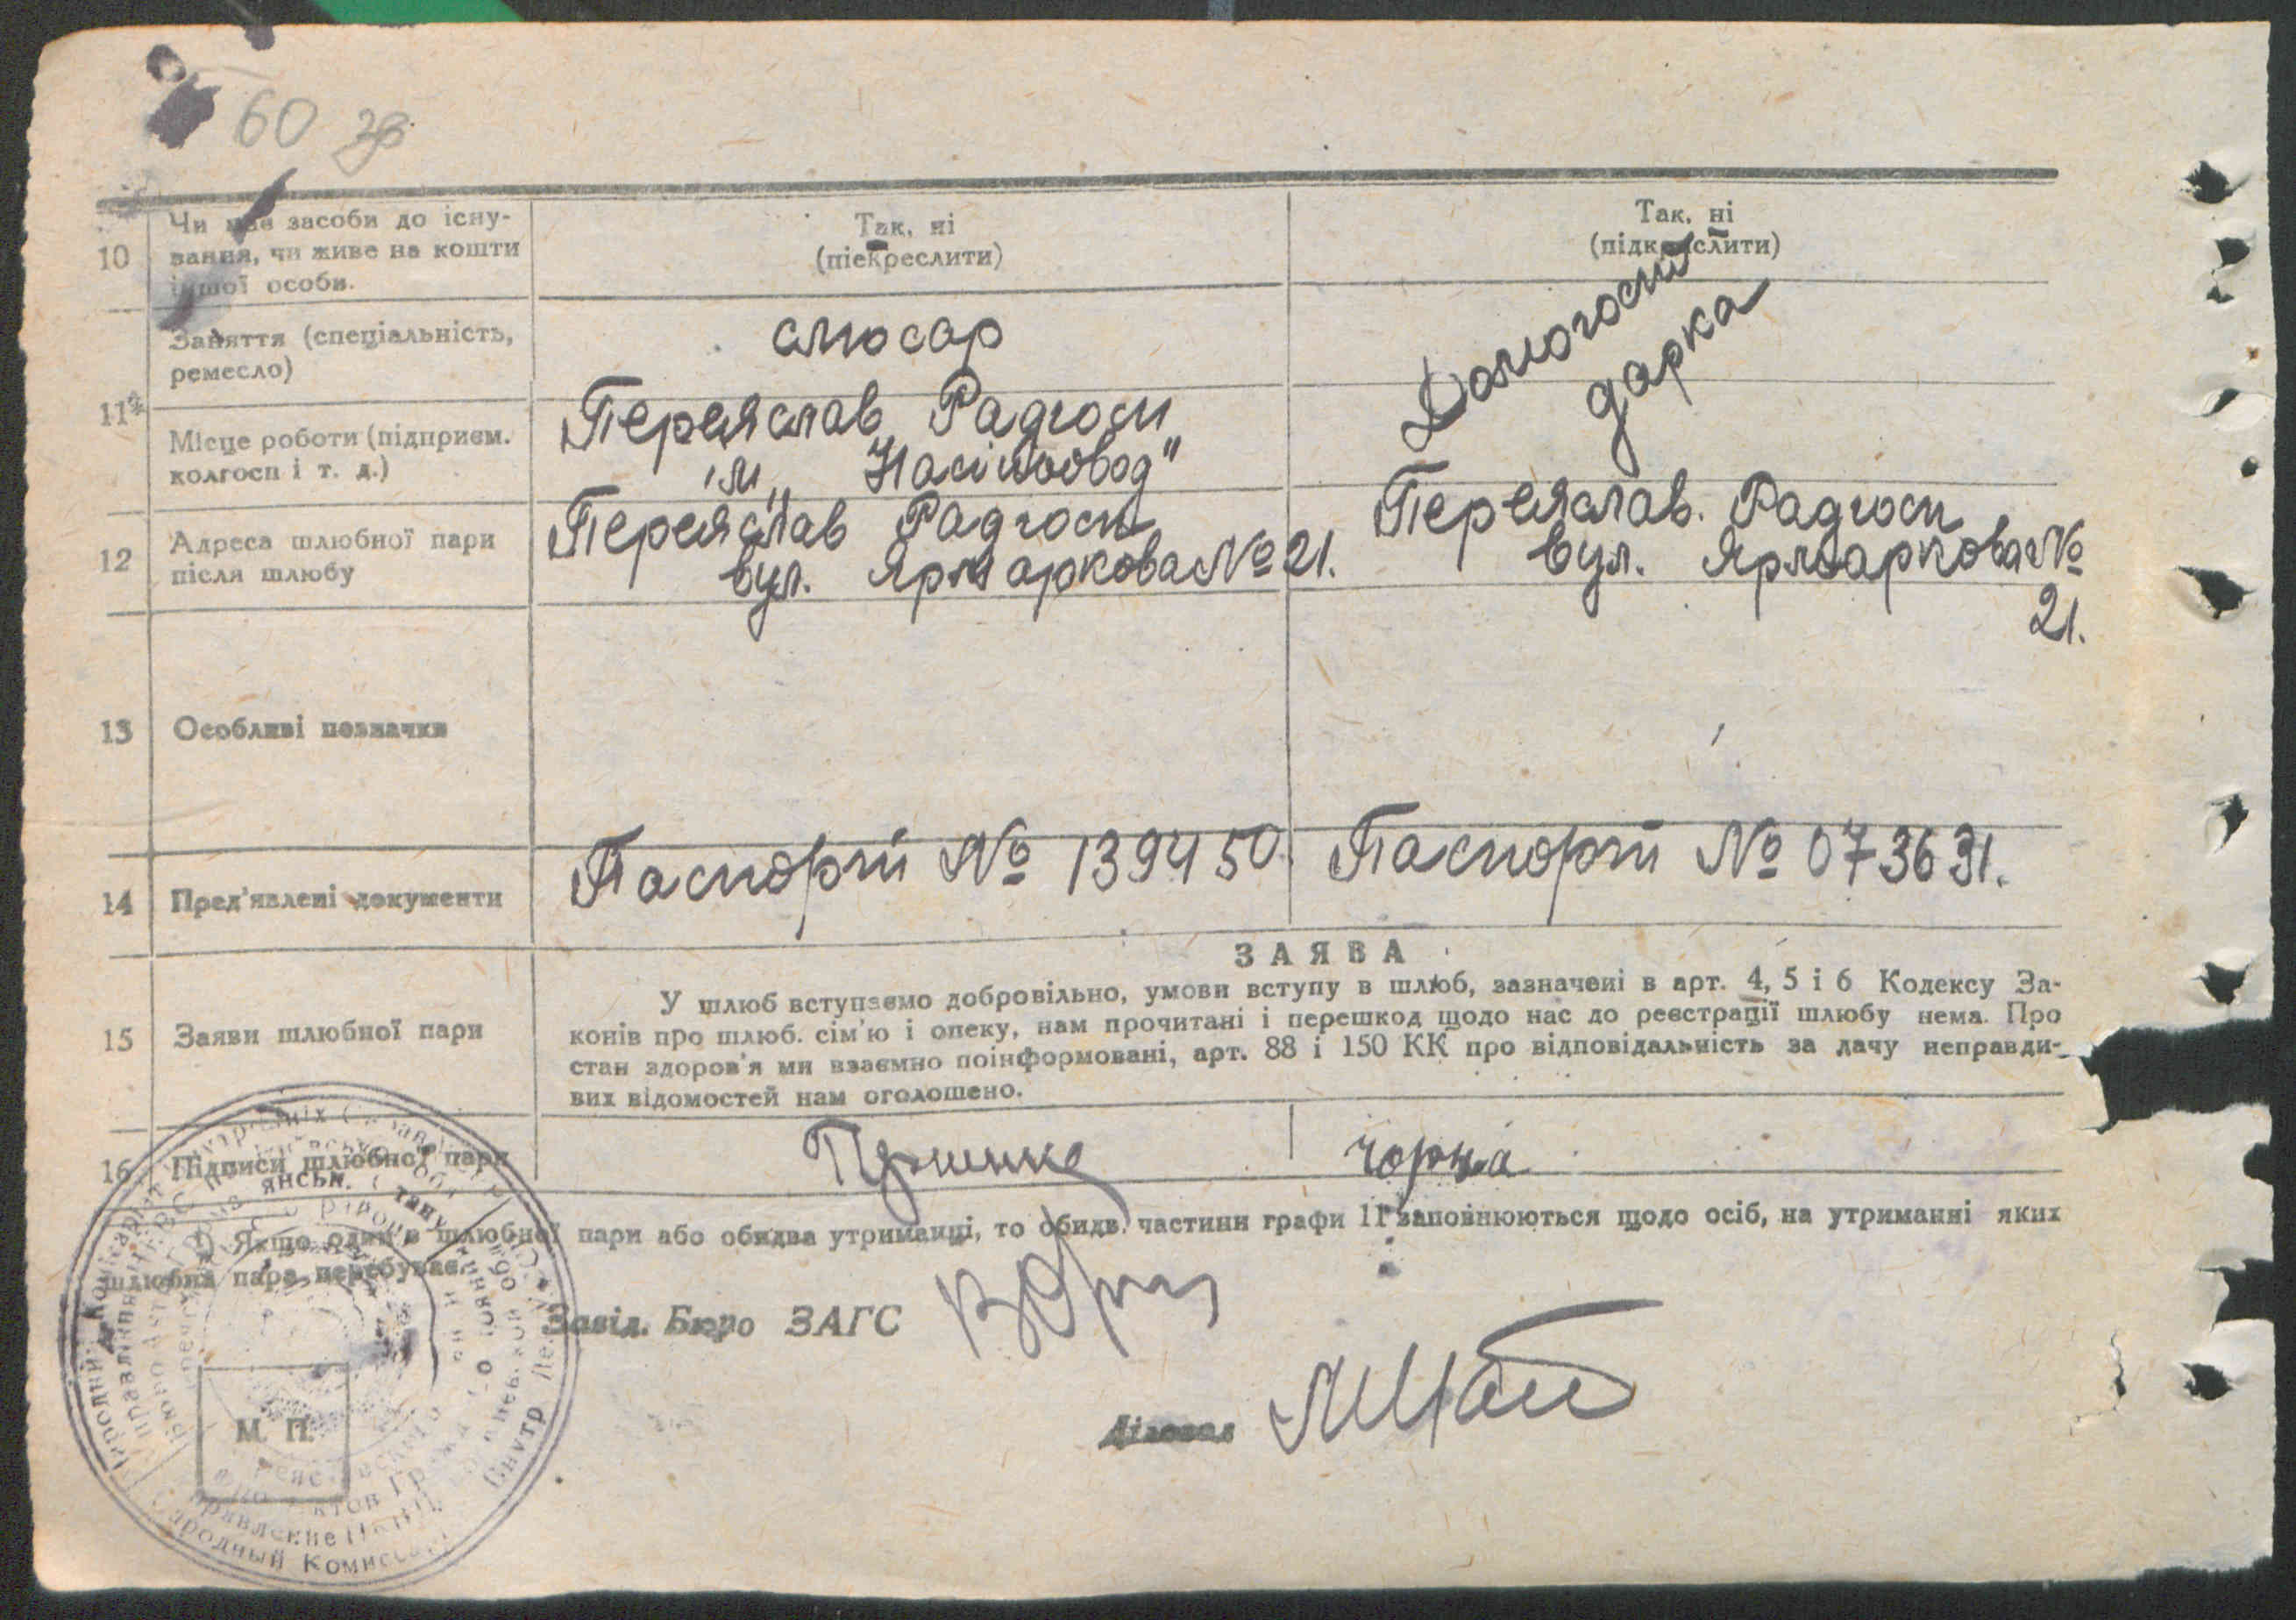 60 зв
10
Чи має засоби до існу-
вання, чи живе на кошти
іншої особи.
Так, ні
(піекреслити)
Так, ні
(підкреслити)
11
Заняття (спеціальність,
ремесло)
слюсар
Домогоспо
дарка
Місце роботи (підприєм.
колгосп і т. д.)
Переяслав Радгосп
ім. „Насіннєвод"
12
Адреса шлюбної пари
після шлюбу
Переяслав Радгосп
вул. Ярмаркова № 21.
Переяслав. Радгосп
вул. Ярмаркова №
21.
13
Особливі позначки
14
Пред'явлені документи
Паспорт № 139450.
Паспорт № 073631.
15
Заяви шлюбної пари
ЗАЯВА
У шлюб вступаємо добровільно, умови вступу в шлюб, зазначені в арт. 4, 5 і 6 Кодексу За-
конів про шлюб. сім'ю і опеку, нам прочитані і перешкод щодо нас до реєстрації шлюбу нема. Про
стан здоров'я ми взаємно поінформовані, арт. 88 і 150 КК про відповідальність за дачу неправди-
вих відомостей нам оголошено.
16
Підписи шлюбної пари
чорна
1) Якщо один з шлюбної пари або обидва утриманці, то обидв. частини графи 11 заповнюються щодо осіб, на утриманні яких
шлюбна пара перебуває.
Завід. Бюро ЗАГС
Діловод
М. П.
Народный Комисс